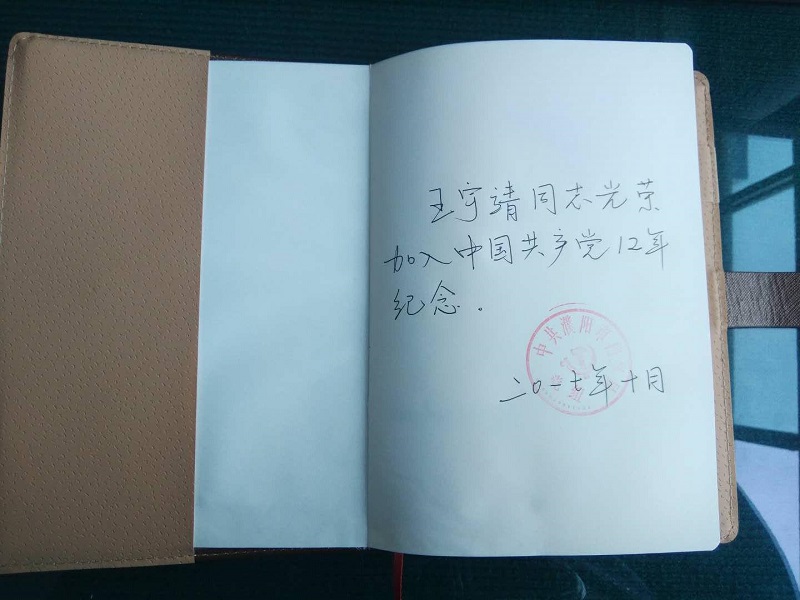 王宇靖同志光荣
加入中国共产党12年
纪念。
中共濮阳
二〇一七年十月